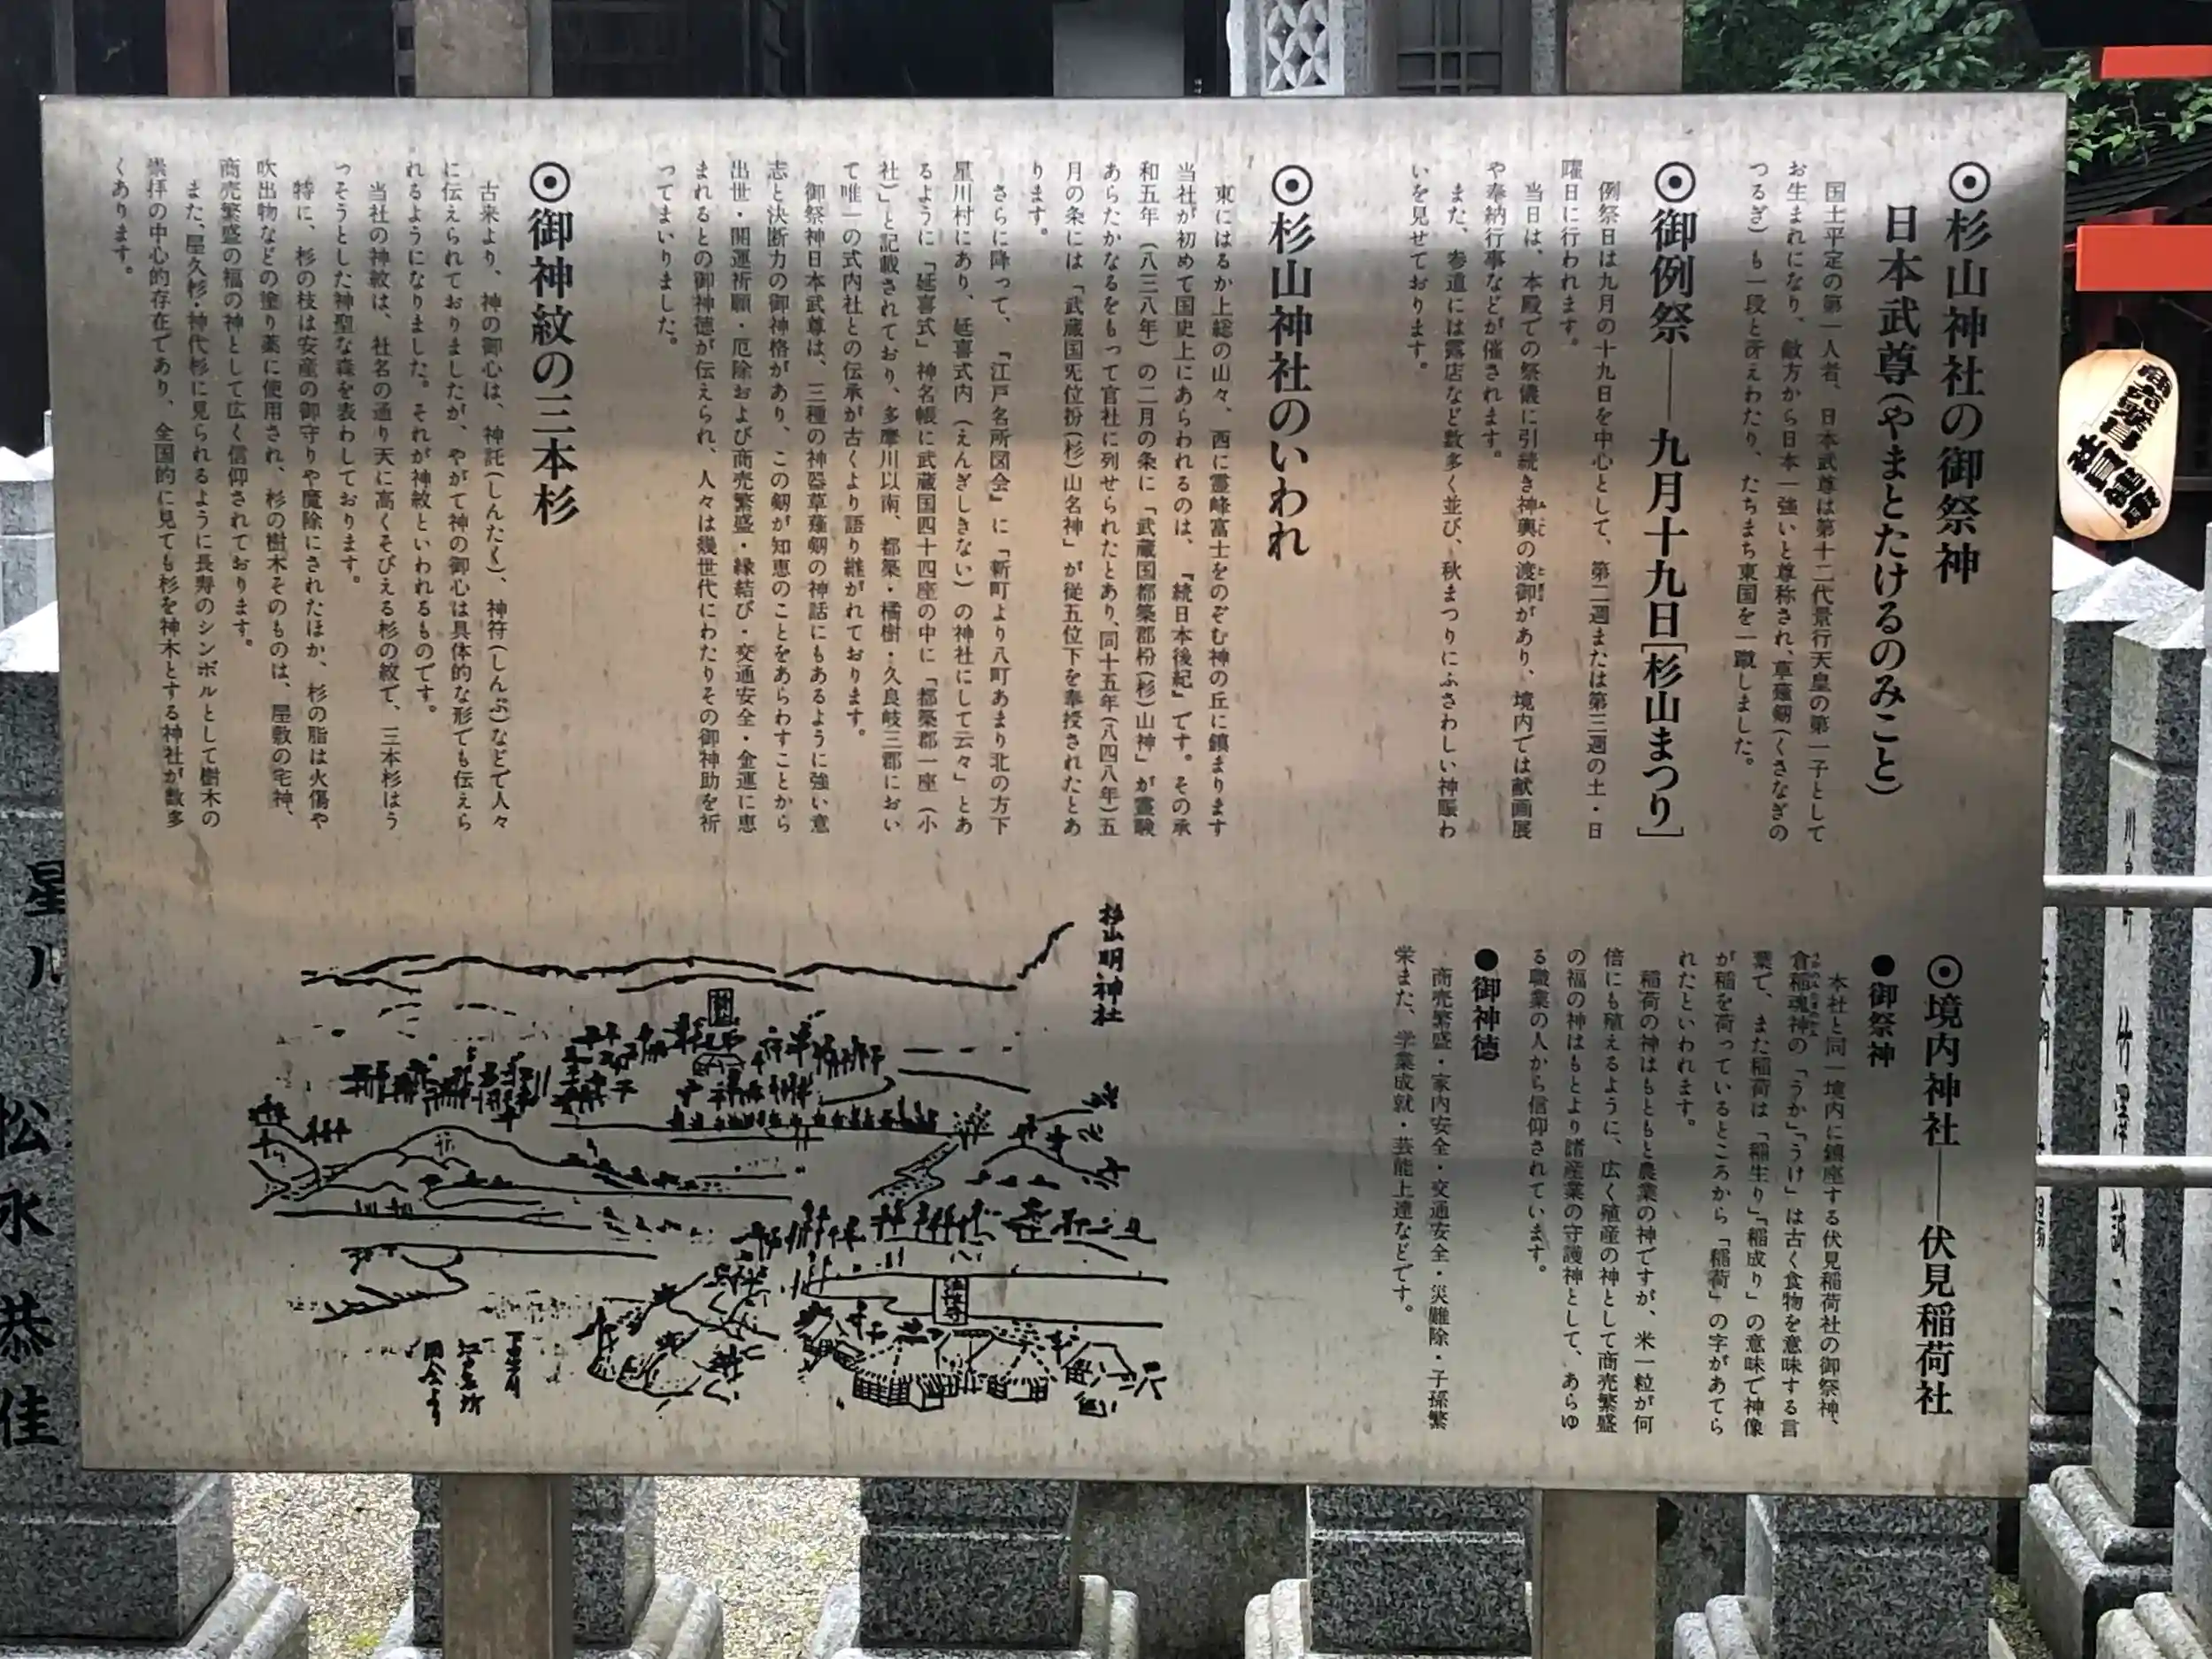 ◉杉山神社の御祭神
日本武尊(やまとたけるのみこと)
国土平定の第一人者、日本武尊は第十二代景行天皇の第一子として
お生まれになり、敵方から日本一強いと尊称され、草薙剱(くさなぎの
つるぎ)も一段と冴えわたり、たちまち東国を一蹴しました。
◉御例祭――九月十九日[杉山まつり]
例祭日は九月の十九日を中心として、第二週または第三週の土・日
曜日に行われます。
当日は、本殿での祭儀に引続き神輿の渡御があり、境内では献画展
や奉納行事などが催されます。
また、参道には露店など数多く並び、秋まつりにふさわしい神賑わ
いを見せております。
◉杉山神社のいわれ
東にはるか上総の山々、西に霊峰富士をのぞむ神の丘に鎮まります
当社が初めて国史上にあらわれるのは、『続日本後紀』です。その承
和五年(八三八年)の二月の条に「武蔵国都築郡枌(杉)山神」が霊験
あらたかなるをもって官社に列せられたとあり、同十五年(八四八年)五
月の条には「武蔵国旡位枌(杉)山名神」が従五位下を奉授されたとあ
ります。
さらに降って、『江戸名所図会』に「新町より八町あまり北の方下
星川村にあり、延喜式内(えんぎしきない)の神社にして云々」とあ
るように「延喜式」神名帳に武蔵国四十四座の中に「都築郡一座(小
社)」と記載されており、多摩川以南、都築・橘樹・久良岐三郡におい
て唯一の式内社との伝承が古くより語り継がれております。
御祭神日本武尊は、三種の神器草薙剱の神話にもあるように強い意
志と決断力の御神格があり、この剱が知恵のことをあらわすことから
出世・開運祈願・厄除および商売繁盛・縁結び・交通安全・金運に恵
まれるとの御神徳が伝えられ、人々は幾世代にわたりその御神助を祈
ってまいりました。
◉御神紋の三本杉
古来より、神の御心は、神託(しんたく)、神符(しんぷ)などで人々
に伝えられておりましたが、やがて神の御心は具体的な形でも伝えら
れるようになりました。それが神紋といわれるものです。
当社の神紋は、社名の通り天に高くそびえる杉の紋で、三本杉はう
っそうとした神聖な森を表わしております。
特に、杉の枝は安産の御守りや魔除にされたほか、杉の脂は火傷や
吹出物などの塗り薬に使用され、杉の樹木そのものは、屋敷の宅神、
商売繁盛の福の神として広く信仰されております。
また、屋久杉・神代杉に見られるように長寿のシンボルとして樹木の
崇拝の中心的存在であり、全国的に見ても杉を神木とする神社が数多
くあります。
◉境内神社――伏見稲荷社
●御祭神
本社と同一境内に鎮座する伏見稲荷社の御祭神、
倉稲魂神の「うか」「うけ」は古く食物を意味する言
葉で、また稲荷は「稲生り」「稲成り」の意味で神像
が稲を荷っているところから「稲荷」の字があてら
れたといわれます。
稲荷の神はもともと農業の神ですが、米一粒が何
倍にも殖えるように、広く殖産の神として商売繁盛
の福の神はもとより諸産業の守護神として、あらゆ
る職業の人から信仰されています。
●御神徳
商売繁盛・家内安全・交通安全・災難除・子孫繁
栄また、学業成就・芸能上達などです。
杉山明神社
江戸名所
図会より
星川
松永恭佳
商売繁昌